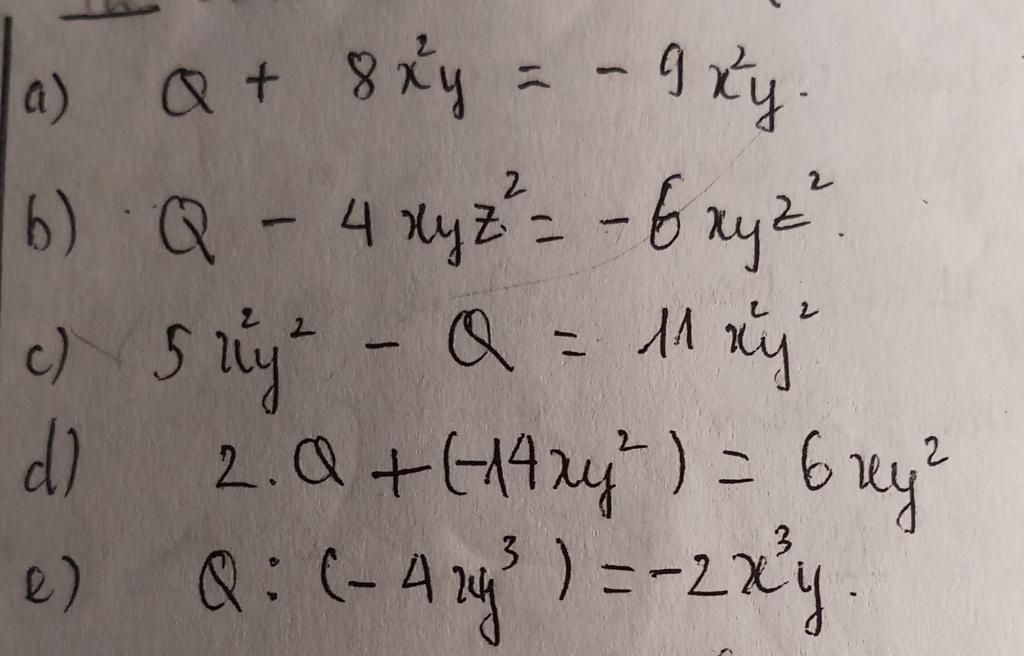 a) Q + 8x²y = -9x²y.
b) Q - 4xyz² = -6xyz².
c) 5x²y² - Q = 11x²y²
d) 2.Q + (-14xy²) = 6xy²
e) Q : (-4xy³) = -2x³y.